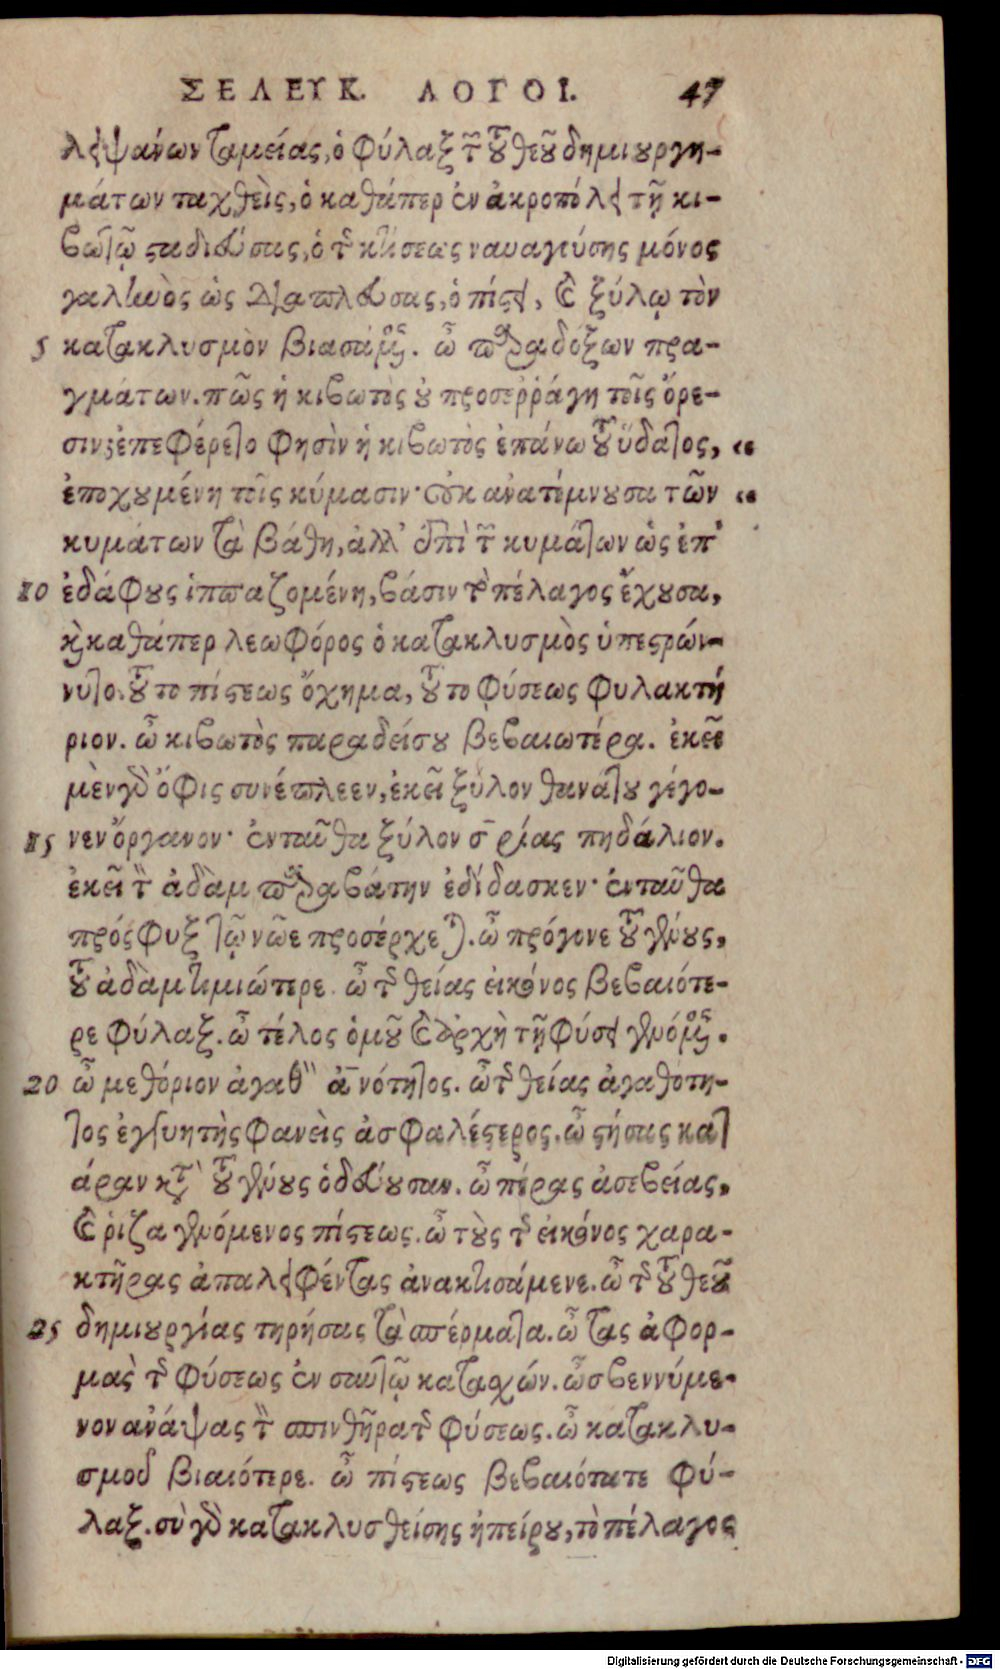 ΣΕΛΕΥΚ. ΛΟΓΟΙ. 47
λειψάνων ταμείας, ὁ φύλαξ τῶν τοῦ θεοῦ δημιουργη-
μάτων ταχθεὶς, ὁ καθάπερ ἐν ἀκροπόλει τῇ κι-
βωτῷ σταδιεύσας, ὁ τῆς κτίσεως ναυαγούσης μόνος
γαληνὸς ὡς διαπλεύσας, ὁ πίστει, καὶ ξύλῳ τὸν
5 κατακλυσμὸν βιασάμενος. ὢ παραδόξων πρα-
γμάτων. πῶς ἡ κιβωτὸς οὐ προσερράγη τοῖς ὄρε-
σιν; ἐπεφέρετο φησὶν ἡ κιβωτὸς ἐπάνω τοῦ ὕδατος, "
ἐποχουμένη τοῖς κύμασιν· οὐκ ἀνατέμνουσα τῶν "
κυμάτων τὰ βάθη, ἀλλ' ἐπὶ τῶν κυμάτων ὡς ἐπ'
10 ἐδάφους ἱππαζομένη, βάσιν τὸ πέλαγος ἔχουσα,
καὶ καθάπερ λεωφόρος ὁ κατακλυσμὸς ὑπεστρών-
νυτο. τοῦτο πίστεως ὄχημα, τοῦτο φύσεως φυλακτή
ριον. ὢ κιβωτὸς παραδείσου βεβαιωτέρα. ἐκεῖ
μὲν γὰρ ὄφις συνέπλεεν, ἐκεῖ ξύλον θανάτου γέγο-
15 νεν ὄργανον· ἐνταῦθα ξύλον σωτηρίας πηδάλιον.
ἐκεῖ τὸν ἀδὰμ παραβάτην ἐδίδασκεν· ἐνταῦθα
πρόσφυξ τῷ νῶε προσέρχεται. ὢ πρόγονε τοῦ γένους,
τοῦ ἀδὰμ τιμιώτερε. ὢ τῆς θείας εἰκόνος βεβαιότε-
ρε φύλαξ. ὢ τέλος ὁμοῦ καὶ ἀρχὴ τῇ φύσει γενόμενος.
20 ὢ μεθόριον ἀγαθῶν ἀνθρωπότητος. ὢ τῆς θείας ἀγαθότη-
τος ἐγγυητὴς φανεὶς ἀσφαλέστερος. ὢ στήσας κατ
άραν κατὰ τοῦ γένους ὁδεύουσαν. ὢ πέρας ἀσεβείας,
καὶ ῥίζα γενόμενος πίστεως. ὢ τοὺς τῆς εἰκόνος χαρα-
κτῆρας ἀπαλειφέντας ἀνακτισάμενε. ὢ τῆς τοῦ θεοῦ
25 δημιουργίας τηρήσας τὰ σπέρματα. ὢ τας ἀφορ-
μὰς τῆς φύσεως ἐν σαυτῷ κατασχών. ὢ σβεννύμε-
νον ἀνάψας τὸν σπινθῆρα τῆς φύσεως. ὢ κατακλυ-
σμοῦ βιαιότερε. ὢ πίστεως βεβαιότατε φύ-
λαξ. σὺ γὰρ κατακλυσθείσης ἠπείρου, τὸ πέλαγος
Digitalisierung gefördert durch die Deutsche Forschungsgemeinschaft - DFG